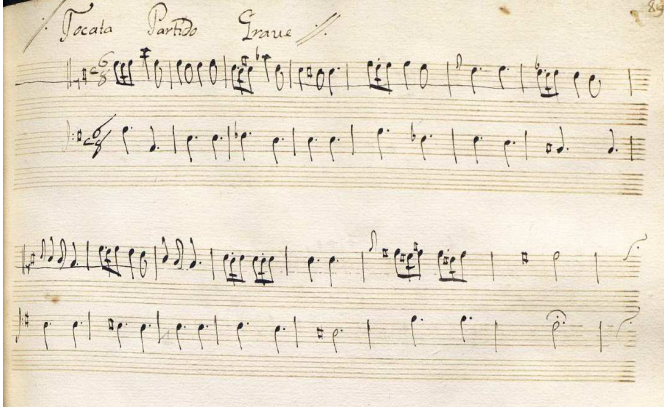 Tocata Partido Graue